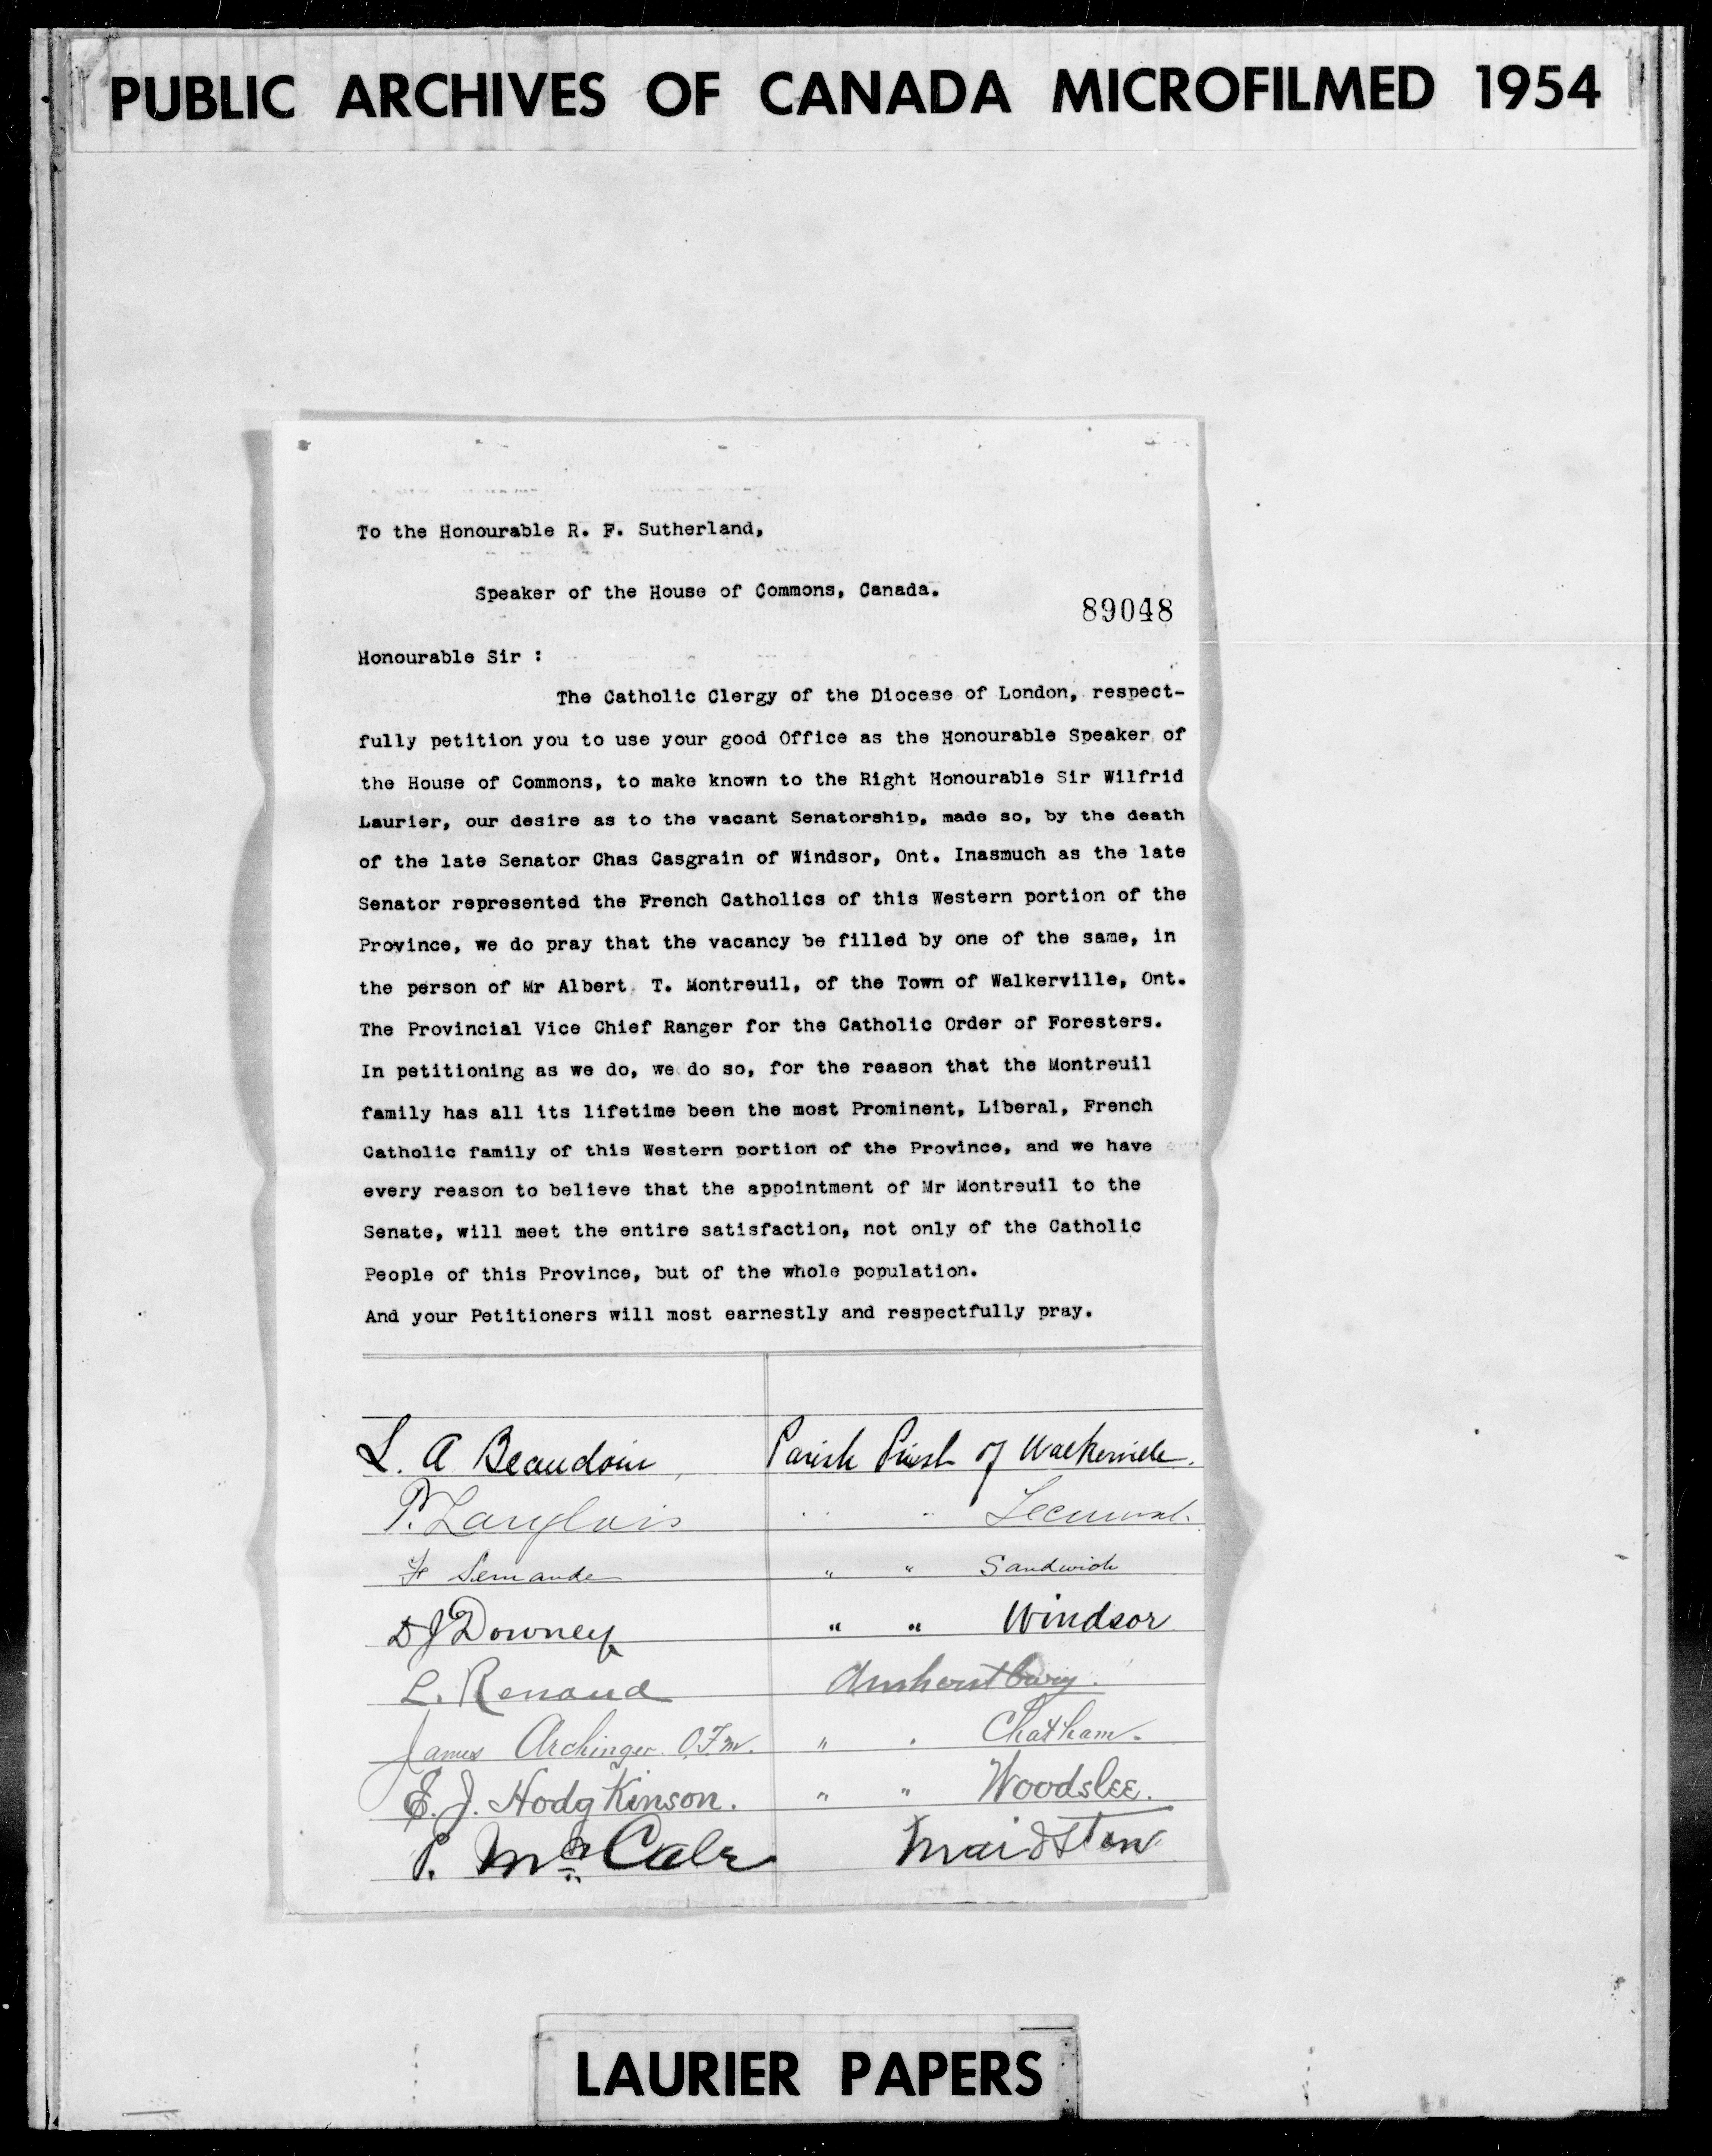 PUBLIC ARCHIVES OF CANADA MICROFILMED 1954
To the Honourable R. F. Sutherland,
Speaker of the House of Commons, Canada.
89048
Honourable Sir :
The Catholic Clergy of the Diocese of London, respect-
fully petition you to use your good Office as the Honourable Speaker of
the House of Commons, to make known to the Right Honourable Sir Wilfrid
Laurier, our desire as to the vacant Senatorship, made so, by the death
of the late Senator Chas Casgrain of Windsor, Ont. Inasmuch as the late
Senator represented the French Catholics of this Western portion of the
Province, we do pray that the vacancy be filled by one of the same, in
the person of Mr Albert T. Montreuil, of the Town of Walkerville, Ont.
The Provincial Vice Chief Ranger for the Catholic Order of Foresters.
In petitioning as we do, we do so, for the reason that the Montreuil
family has all its lifetime been the most Prominent, Liberal, French
Catholic family of this Western portion of the Province, and we have
every reason to believe that the appointment of Mr Montreuil to the
Senate, will meet the entire satisfaction, not only of the Catholic
People of this Province, but of the whole population.
And your Petitioners will most earnestly and respectfully pray.
L. A Beaudoin Parish Priest of Walkerville.
P. Langlois " " Tecumseh.
" " Sandwich
D J Downey " " Windsor
L. Renaud Amherstburg.
James Archinger O.F.M. " " Chatham.
E. J. Hodgkinson. " " Woodslee.
P. McCabe Maidston
LAURIER PAPERS